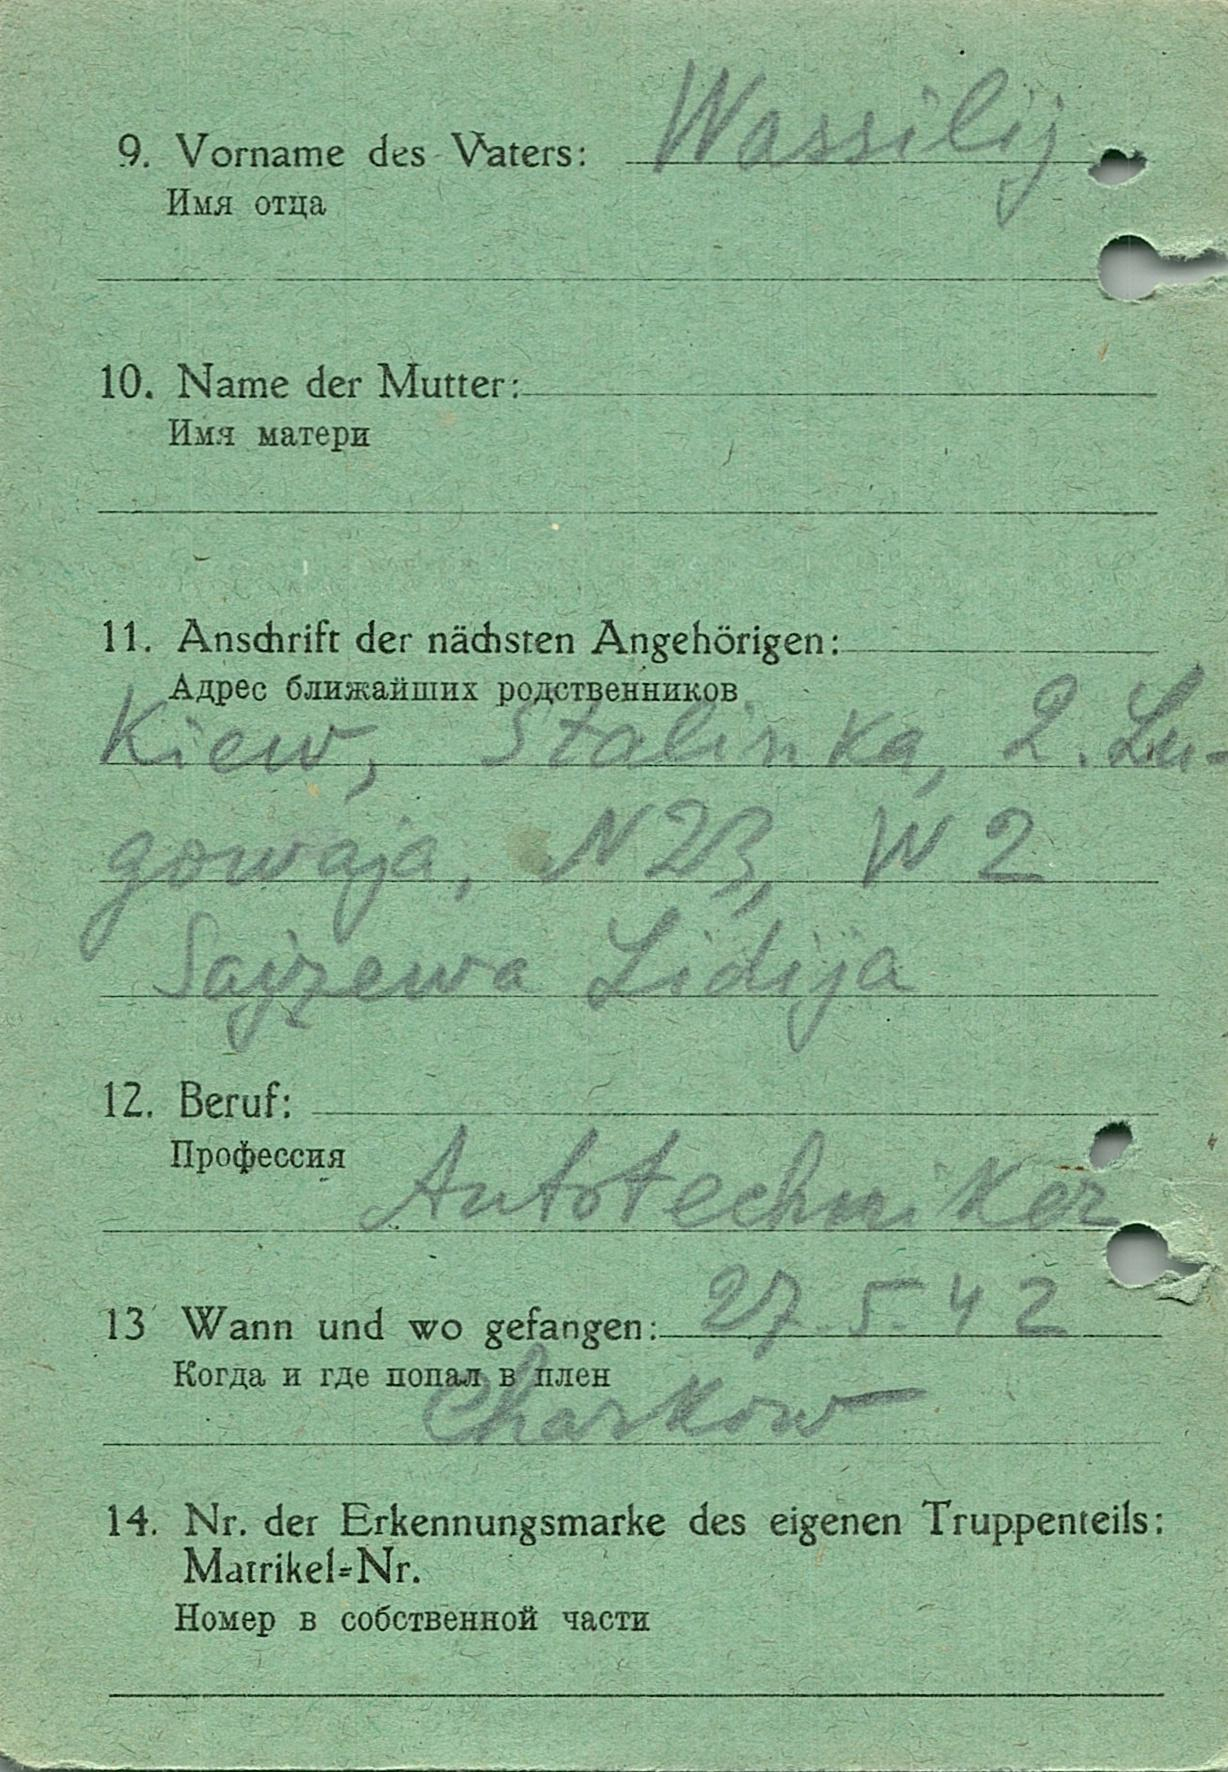 9. Vorname des Vaters: Wassilij
Имя отца
10. Name der Mutter:
Имя матери
11. Anschrift der nächsten Angehörigen:
Адрес ближайших родственников
Kiew, Stalinka, 2. Lu-
gowaja, N 23, W 2
Sajzewa Lidija
12. Beruf:
Профессия
Autotechniker
13 Wann und wo gefangen: 27.5.42
Когда и где попал в плен
Charkow
14. Nr. der Erkennungsmarke des eigenen Truppenteils:
Matrikel=Nr.
Номер в собственной части